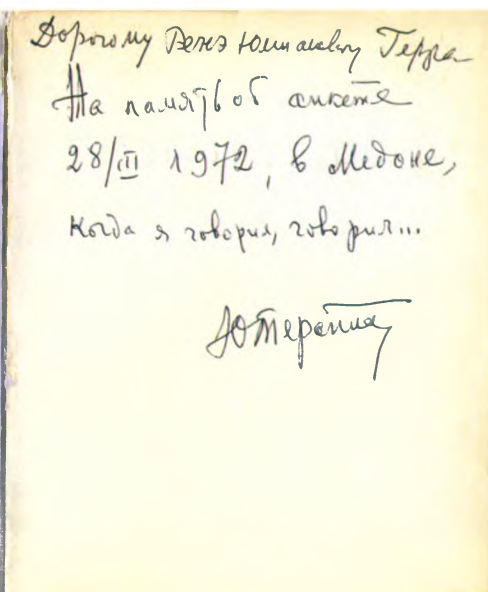 Дорогому Ренэ Юлиановичу Герра
На память об анкете
28/III 1972, в Медоне,
Когда я говорил, говорил...
ЮТерапиано